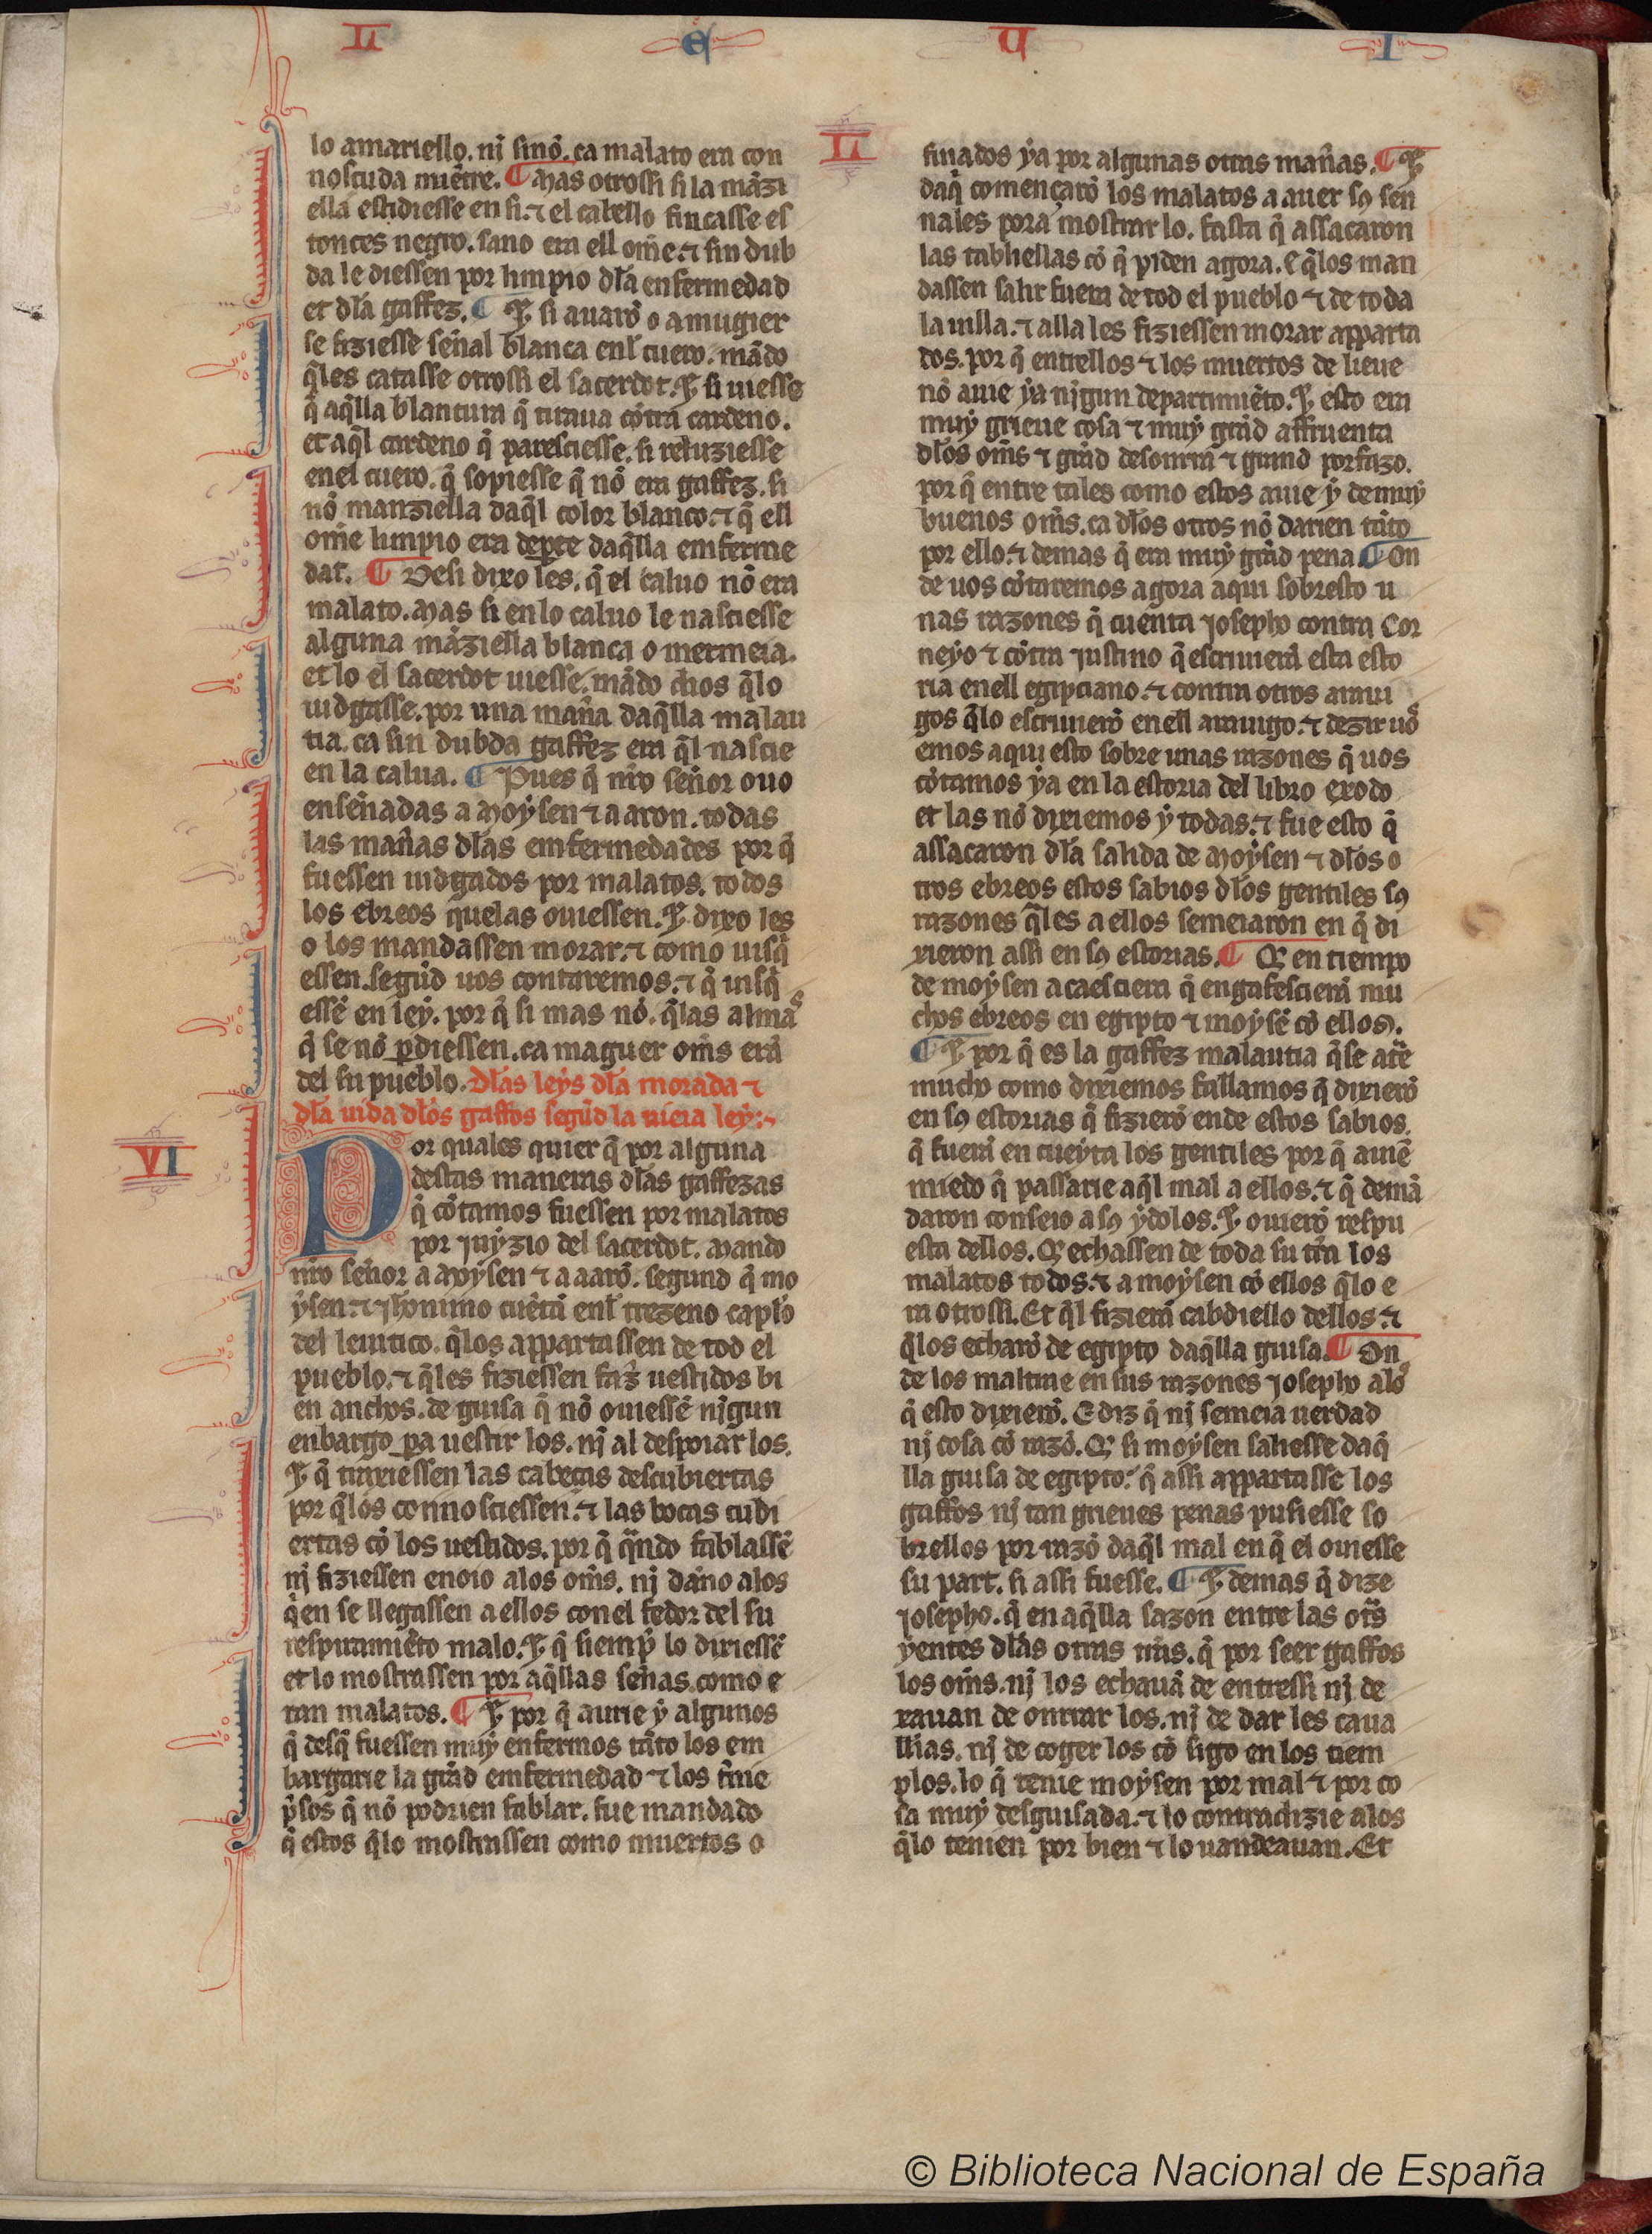 L e U I
lo amariello. nj sinõ. ca malato era con
nosçuda miẽtre. ¶ Mas otrossi si la mãzi
ella estidiesse en si. ⁊ el cabello fincasse es
tonces negro. sano era ell om̃e. ⁊ sin dub
da le diessen por limpio dl̃a enfermedad
et dl̃a gaffez. ¶ ⁊ si auarõ o amugier
se fiziesse señal blanca enl̃ cuero. mãdo
q̃les catasse otrossi el sacerdot. ⁊ si uiesse
q̃ aq̃lla blancura q̃ tiraua cõtra cardeno.
et aq̃l cardeno q̃ paresciesse. si reluziesse
enel cuero. q̃ sopiesse q̃ nõ era gaffez. si
nõ manziella daq̃l color blanco. ⁊ q̃ ell
om̃e limpio era depte daq̃lla emferme
dat. ¶ Desi dixo les. q̃ el caluo nõ era
malato. Mas si en lo caluo le nasciesse
alguna mãziella blanca o mermeia.
et lo el sacerdot uiesse. mãdo dios q̃lo
iudgasse. por una mañа daq̃lla malau
tia. ca sin dubda gaffez era q̃l nascie
en la calua. ¶ Pues q̃ nr̃o señor ouo
enseñadas a Moysen ⁊ a aaron. todas
las mañas dl̃as emfermedades por q̃
fuessen iudgados por malatos. todos
los ebreos quelas ouiessen. ⁊ dixo les
o los mandassen morar. ⁊ como uisq̃
essen. segũd uos contaremos. ⁊ q̃ uisq̃
essẽ en ley. por q̃ si mas nõ. q̃las almas
q̃ se nõ pdiessen. ca maguer om̃s erã
del su pueblo. Dl̃as leys dl̃a morada ⁊
dl̃a uida dl̃os gaffos segũd la uieia ley:~
VI
Por quales quier q̃ por alguna
destas maneras dl̃as gaffezas
q̃ cõtamos fuessen por malatos
por juyzio del sacerdot. Mando
nr̃o señor a Moysen ⁊ a aarõ. segund q̃ mo
ysen. ⁊ jh̃onimo cuẽta enl̃ trezeno caplõ
del leuitico. q̃los appartassen de tod el
pueblo. ⁊ q̃les fiziessen faz̃ uestidos bi
en anchos. de guisa q̃ nõ ouiessẽ njgun
enbargo pa uestir los. nj al despoiar los.
⁊ q̃ traxiessen las cabeças descubiertas
por q̃los connosciessen. ⁊ las bocas cubi
ertas cõ los uestidos. por q̃ q̃ndo fablassẽ
nj fiziessen enoio alos om̃s. nj daño alos
q̃en se llegassen a ellos con el fedor del su
respiramiẽto malo. ⁊ q̃ siemp̃ lo dixiessẽ
et lo mostrassen por aq̃llas señas. como e
ran malatos. ¶ ⁊ por q̃ aurie y algunos
q̃ desq̃ fuessen muy enfermos tãto los em
bargarie la grãd emfermedad ⁊ los t̃nie
p̃sos q̃ nõ podrien fablar. fue mandado
q̃ estos q̃lo mostrassen como muertos o
L
finados ya por algunas otras mañas. ¶ ⁊
daq̃ començarõ los malatos a auer sꝯ sen
nales pora mostrar lo. fasta q̃ assacaron
las tabliellas cõ q̃ piden agora. E q̃los man
dassen salir fuera de tod el pueblo ⁊ de toda
la uilla. ⁊ alla les fiziessen morar apparta
dos. por q̃ entrellos ⁊ los muertos de lieue
nõ auie ya njgun departimiẽto. ⁊ esto era
muy grieue cosa ⁊ muy grãd affruenta
dl̃os om̃s ⁊ grãd desonrra ⁊ grand porfazo.
por q̃ entre tales como estos auie y de muy
buenos om̃s. ca dl̃os otros nõ darien tãto
por ello. ⁊ demas q̃ era muy grãd pena ¶ On
de uos cõtaremos agora aqui sobresto u
nas razones q̃ cuenta josepho contra Cor
neyo ⁊ cõtra justino q̃ escriuierã esta esto
ria enell egipciano. ⁊ contra otros amui
gos q̃lo escriuierõ enell arauigo. ⁊ dezir uos
emos aqui esto sobre unas razones q̃ uos
cõtamos ya en la estoria del libro exodo
et las nõ dixiemos y todas. ⁊ fue esto q̃
assacaron dl̃a salida de Moysen ⁊ dl̃os o
tros ebreos estos sabios dl̃os gentiles sꝯ
razones q̃les a ellos semeiaron en q̃ di
xieron assi en sꝯ estorias. ¶ Q̃ en tiempo
de moysen acaesciera q̃ engafescierã mu
chos ebreos en egipto ⁊ moysẽ cõ ellos.
¶ ⁊ por q̃ es la gaffez malautia q̃se at̃e
mucho como dixiemos fallamos q̃ dixierõ
en sꝯ estorias q̃ fizierõ ende estos sabios.
q̃ fuerã en cueyta los gentiles por q̃ auiẽ
miedo q̃ passarie aq̃l mal a ellos. ⁊ q̃ demã
daron conseio a sꝯ ydolos. ⁊ ouierõ respu
esta dellos. Q̃ echassen de toda su tr̃ra los
malatos todos. ⁊ a moysen cõ ellos q̃lo e
ra otrossi. Et q̃l fizierã cabdiello dellos. ⁊
q̃los echarõ de egipto daq̃lla guisa. ¶ On
de los maltrae en sus razones josepho alos
q̃ esto dixierõ. E diz q̃ nj semeia uerdad
nj cosa cõ razõ. Q̃ si moysen saliesse daq̃
lla guisa de egipto. q̃ assi appartasse los
gaffos nj tan grieues penas pusiesse so
brellos por razõ daq̃l mal en q̃ el ouiesse
su part. si assi fuesse. ¶ ⁊ demas q̃ dize
josepho. q̃ en aq̃lla sazon entre las ot̃s
yentes dl̃as otras tr̃ras. q̃ por seer gaffos
los om̃s. nj los echauã de entressi nj de
xauan de onrrar los. nj de dar les caua
llias. nj de coger los cõ sigo en los tiem
plos. lo q̃ tenie moysen por mal ⁊ por co
sa muy desguisada. ⁊ lo contradizie alos
q̃lo tenien por bien ⁊ lo uandeauan. Et
© Biblioteca Nacional de España